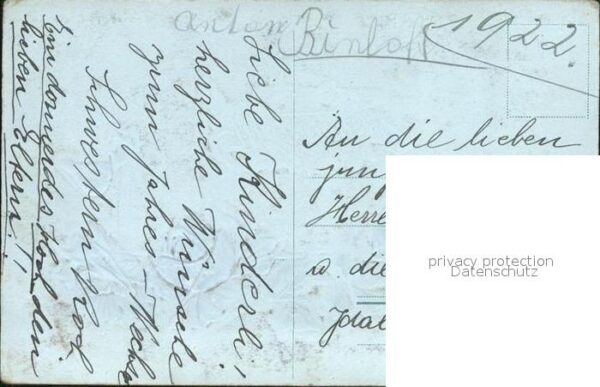 Anton
1922.
Liebe Kinderli!
herzliche Wünsche
zum Jahres-Wechsel
Schwestern
Ein donnerndes Hoch den
lieben Eltern!!
An die lieben
jun
Herre
u. die
privacy protection
Datenschutz